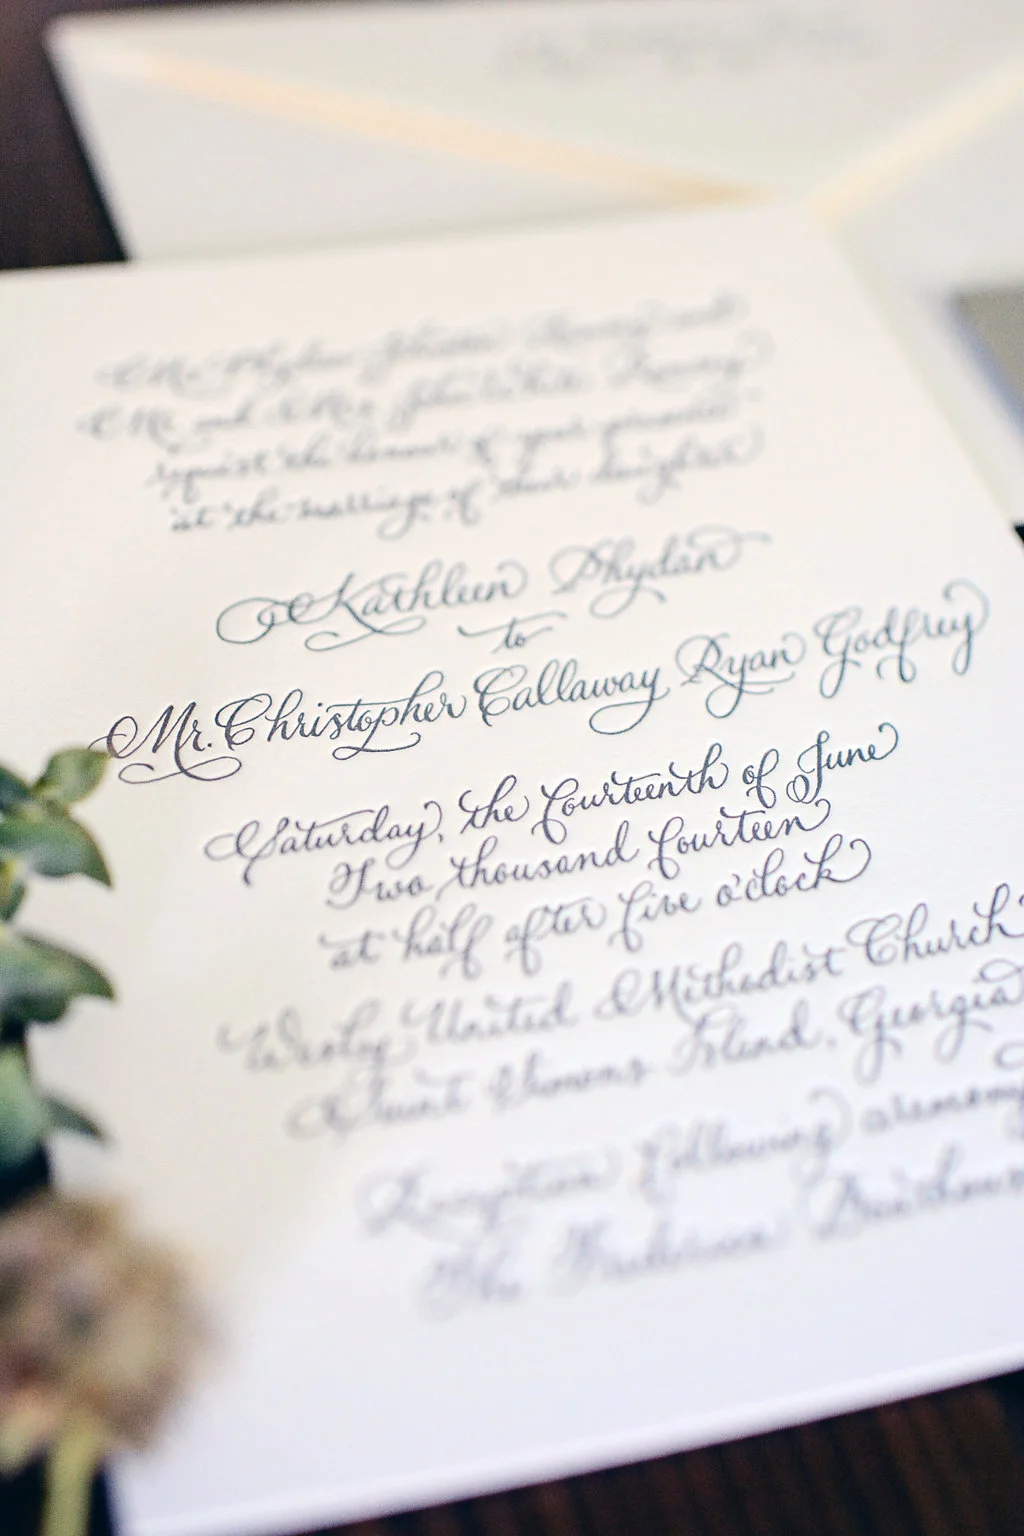 and
Mr. and Mrs. John White
request the honour of your presence
at the marriage of their daughter
Kathleen Phydan
to
Mr. Christopher Callaway Ryan Godfrey
Saturday, the fourteenth of June
Two thousand fourteen
at half after five o'clock
Wesley United Methodist Church
Saint Simons Island, Georgia
Reception following ceremony
The